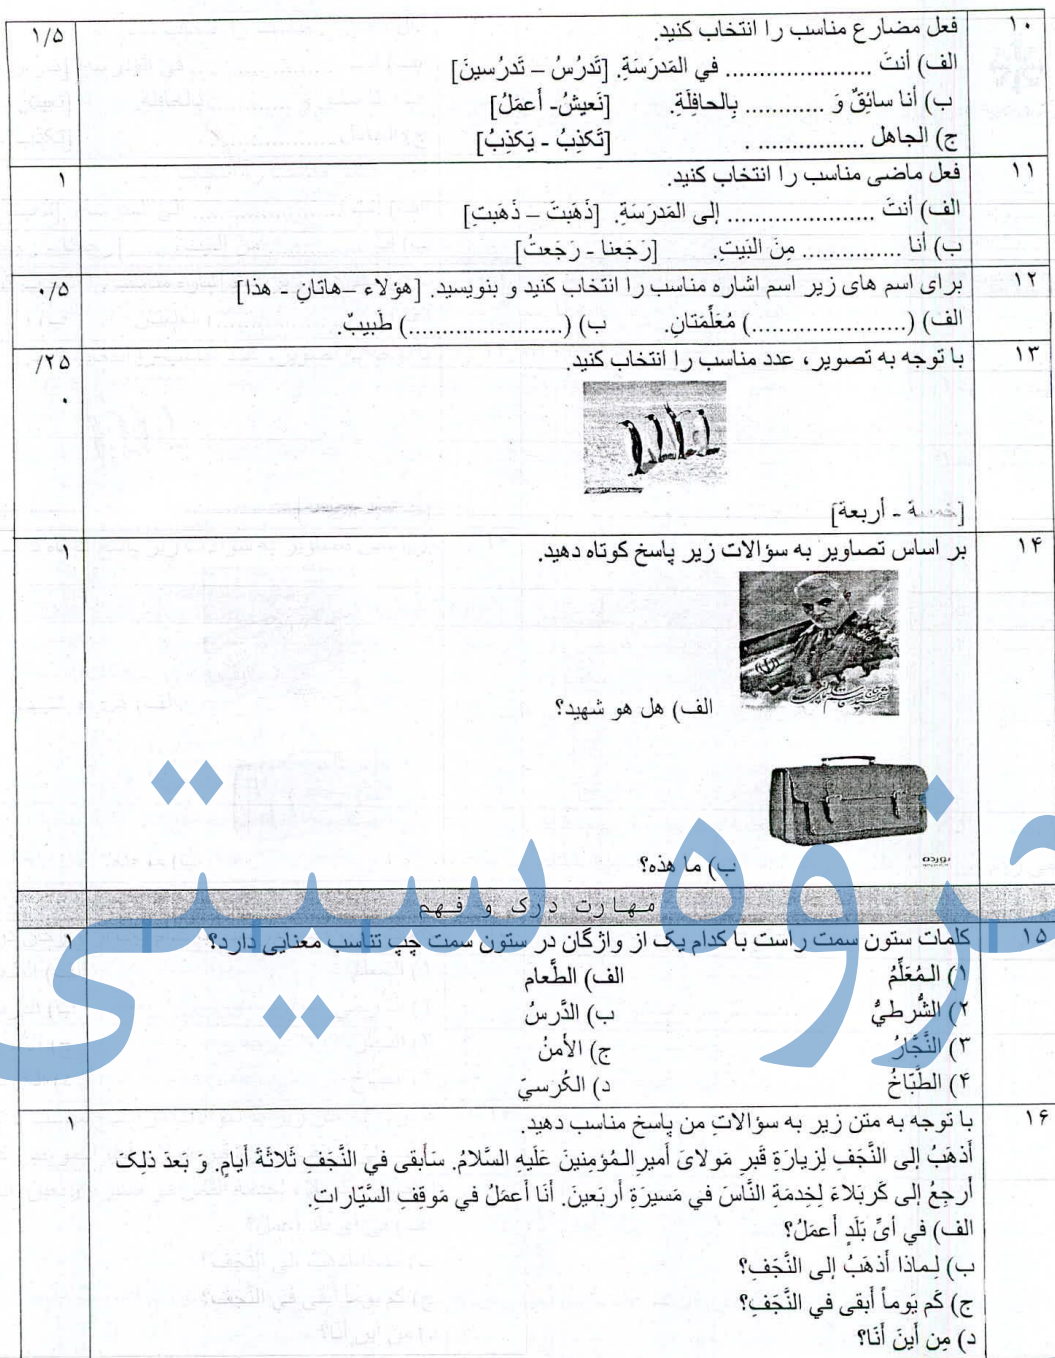 ۱۰ فعل مضارع مناسب را انتخاب کنید. ۱/۵
الف) أنتَ ..................... في المَدرَسَةِ. [تَدرُسُ – تَدرُسينَ]
ب) أنا سائِقٌ وَ ............ بِالحافِلَةِ. [نَعيشُ- أَعمَلُ]
ج) الجاهل ................ . [تَكذِبُ - يَكذِبُ]
۱۱ فعل ماضی مناسب را انتخاب کنید. ۱
الف) أنتَ ..................... إلى المَدرَسَةِ. [ذَهَبتَ – ذَهَبتِ]
ب) أنا ............... مِنَ البَيتِ. [رَجَعنا - رَجَعتُ]
۱۲ برای اسم های زیر اسم اشاره مناسب را انتخاب کنید و بنویسید. [هؤلاء –هاتانِ - هذا] ۰/۵
الف) (.......................) مُعَلِّمَتانِ. ب) (.......................) طَبيبٌ.
۱۳ با توجه به تصویر، عدد مناسب را انتخاب کنید. /۲۵
۰
[خمسة - أربعة]
۱۴ بر اساس تصاویر به سؤالات زیر پاسخ کوتاه دهید. ۱
الف) هل هو شهید؟
ب) ما هذه؟
جزوه سیتی
مهارت درک و فهم
۱۵ کلمات ستون سمت راست با کدام یک از واژگان در ستون سمت چپ تناسب معنایی دارد؟ ۱
۱) الـمُعَلِّمُ الف) الطَّعام
۲) الشُّرطيُّ ب) الدَّرسُ
۳) النَّجّارُ ج) الأمنُ
۴) الطَّبّاخُ د) الكُرسيَ
۱۶ با توجه به متن زیر به سؤالاتِ من پاسخ مناسب دهید. ۱
أذهَبُ إلى النَّجَفِ لِزيارَةِ قَبرِ مَولایَ أميرِ الـمُؤمِنينَ عَلَيهِ السَّلامُ. سَأبقى في النَّجَفِ ثَلاثَةَ أيامٍ. وَ بَعدَ ذلِکَ
أرجِعُ إلى كَربَلاءَ لِخِدمَةِ النَّاسَ في مَسيرَةِ أربَعينَ. أنَا أعمَلُ في مَوقِفِ السَّيّاراتِ.
الف) في أیِّ بَلَدٍ أعمَلُ؟
ب) لِـماذا أذهَبُ إلى النَّجَفِ؟
ج) كَم يَوماً أبقى في النَّجَفِ؟
د) مِن أينَ أنَا؟